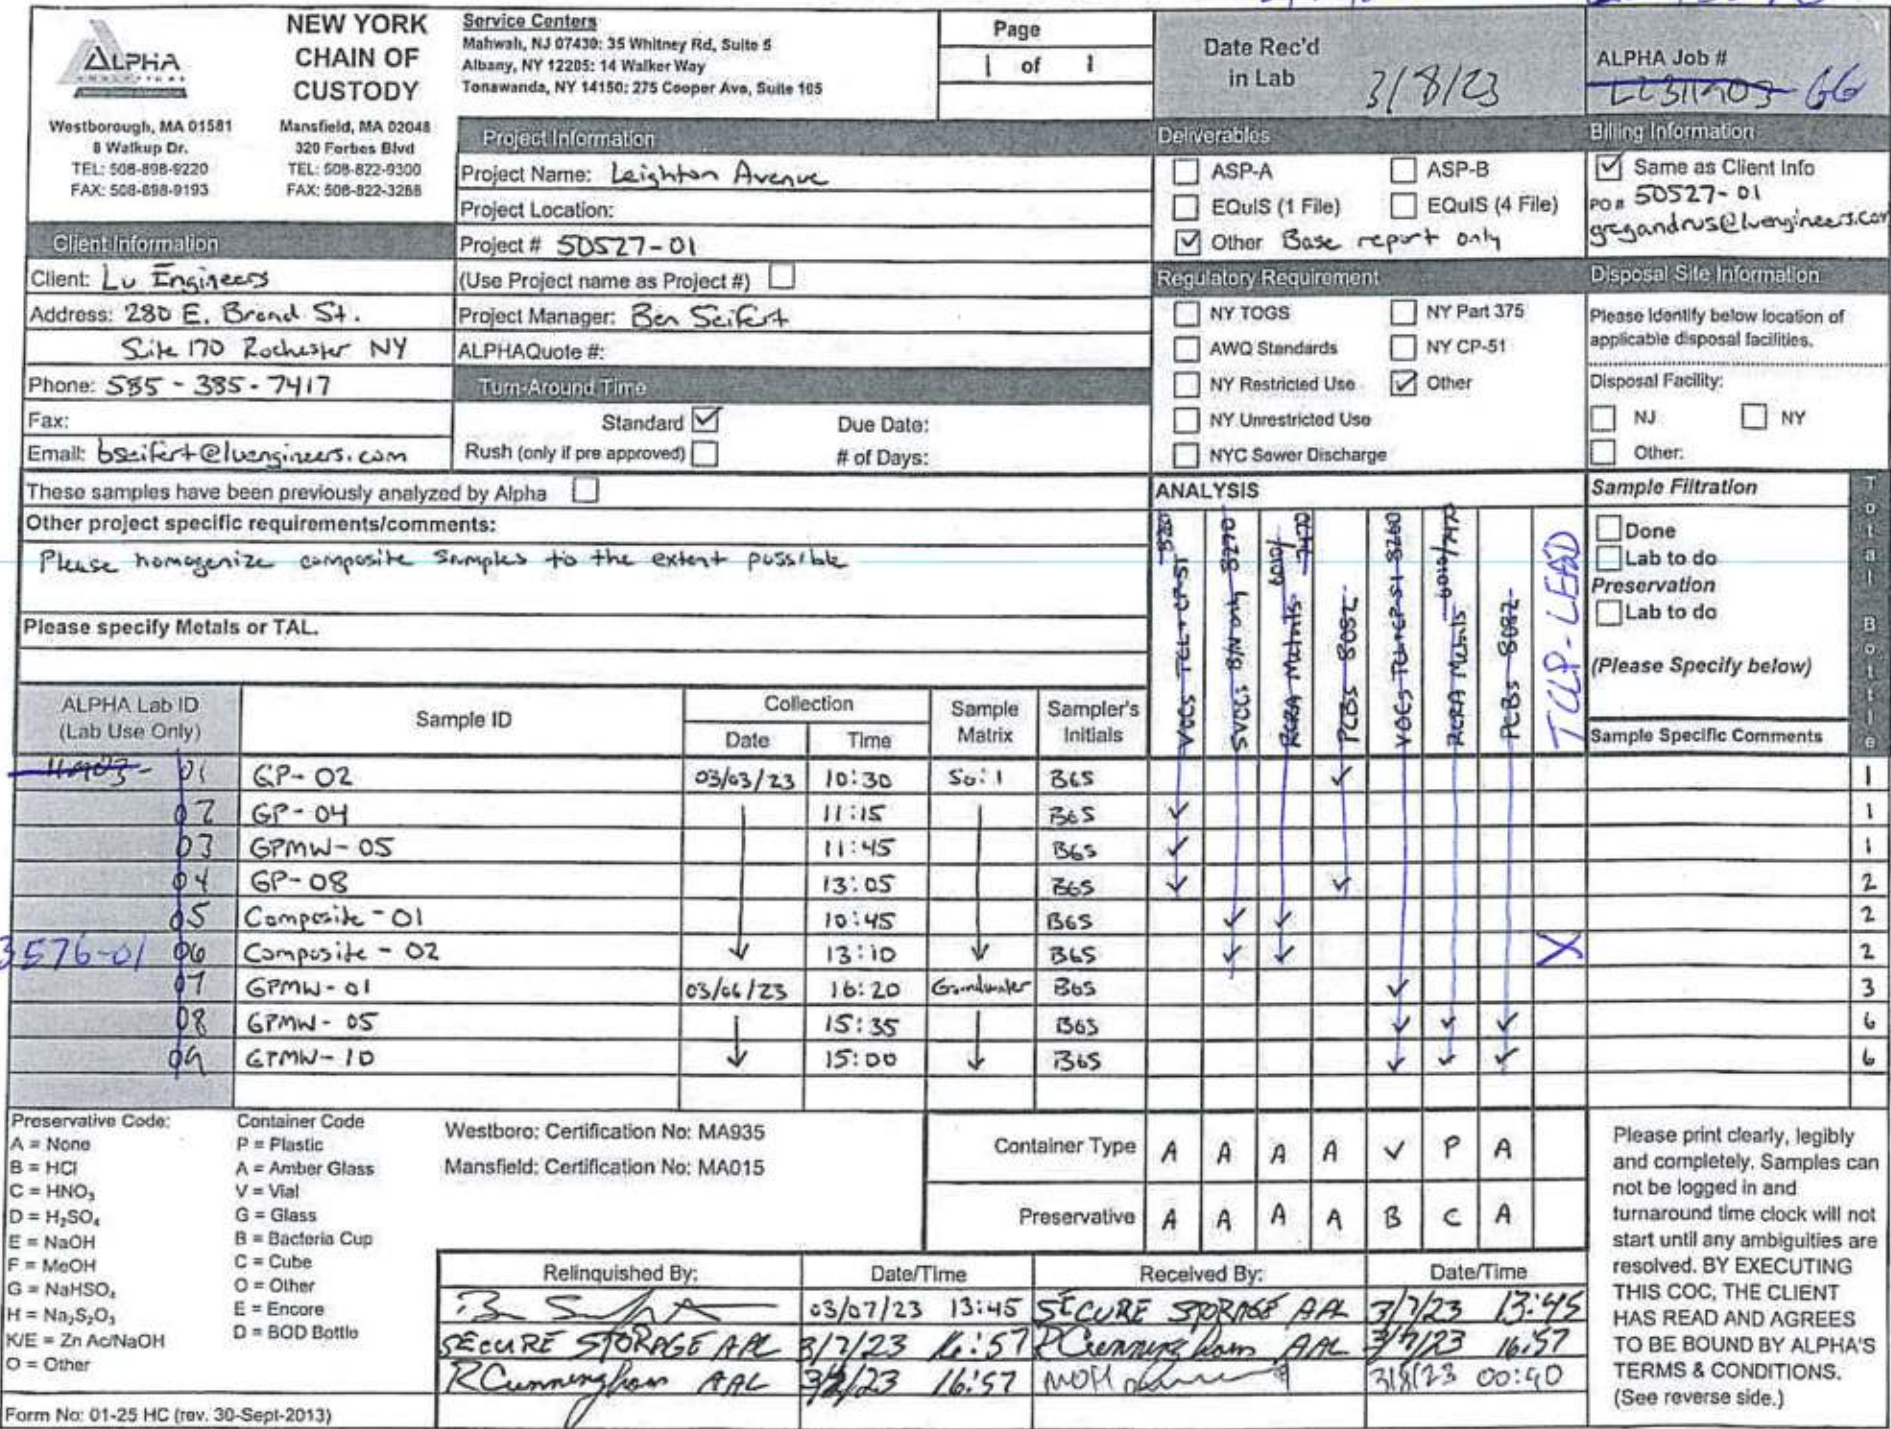 ALPHA
ANALYTICAL
Westborough, MA 01581
8 Walkup Dr.
TEL: 508-898-9220
FAX: 508-898-9193
NEW YORK
CHAIN OF
CUSTODY
Mansfield, MA 02048
320 Forbes Blvd
TEL: 508-822-9300
FAX: 508-822-3288
Service Centers
Mahwah, NJ 07430: 35 Whitney Rd, Suite 5
Albany, NY 12205: 14 Walker Way
Tonawanda, NY 14150: 275 Cooper Ave, Suite 105
Page
1 of 1
Date Rec'd
in Lab 3/8/23
ALPHA Job #
L2311903 GG
Client Information
Client: Lu Engineers
Address: 280 E. Broad St.
Suite 170 Rochester NY
Phone: 585-385-7417
Fax:
Email: bseifert@luengineers.com
Project Information
Project Name: Leighton Avenue
Project Location:
Project # 50527-01
(Use Project name as Project #)
Project Manager: Ben Seifert
ALPHAQuote #:
Turn-Around Time
Standard ✓ Due Date:
Rush (only if pre approved) # of Days:
Deliverables
ASP-A ASP-B
EQuIS (1 File) EQuIS (4 File)
✓ Other Base report only
Regulatory Requirement
NY TOGS NY Part 375
AWQ Standards NY CP-51
NY Restricted Use ✓ Other
NY Unrestricted Use
NYC Sewer Discharge
Billing Information
✓ Same as Client Info
PO # 50527-01
gregandrus@luengineers.com
Disposal Site Information
Please identify below location of
applicable disposal facilities.
Disposal Facility:
NJ NY
Other:
These samples have been previously analyzed by Alpha
Other project specific requirements/comments:
Please homogenize composite samples to the extent possible
Please specify Metals or TAL.
ANALYSIS
VOCs TCL + CP-51 8260
SVOCs B/N only 8270
RCRA Metals 6010/7470
PCBs 8082
VOCs TCL+CP-51 8260
RCRA Metals 6010/7470
PCBs 8082
TCLP-LEAD
Sample Filtration
Done
Lab to do
Preservation
Lab to do
(Please Specify below)
Sample Specific Comments
Total Bottle
ALPHA Lab ID
(Lab Use Only)
Sample ID
Collection
Date Time
Sample
Matrix
Sampler's
Initials
11903- 01 GP-02 03/03/23 10:30 Soil BGS ✓ 1
02 GP-04 11:15 BGS ✓ 1
03 GPMW-05 11:45 BGS ✓ 1
04 GP-08 13:05 BGS ✓ ✓ 2
05 Composite-01 10:45 BGS ✓ ✓ 2
3576-01 06 Composite-02 13:10 BGS ✓ ✓ X 2
07 GPMW-01 03/06/23 16:20 Groundwater BGS ✓ 3
08 GPMW-05 15:35 BGS ✓ ✓ ✓ 6
09 GPMW-10 15:00 BGS ✓ ✓ ✓ 6
Preservative Code:
A = None
B = HCl
C = HNO₃
D = H₂SO₄
E = NaOH
F = MeOH
G = NaHSO₄
H = Na₂S₂O₃
K/E = Zn Ac/NaOH
O = Other
Container Code
P = Plastic
A = Amber Glass
V = Vial
G = Glass
B = Bacteria Cup
C = Cube
O = Other
E = Encore
D = BOD Bottle
Westboro: Certification No: MA935
Mansfield: Certification No: MA015
Container Type A A A A V P A
Preservative A A A A B C A
Relinquished By: Date/Time Received By: Date/Time
03/07/23 13:45 SECURE STORAGE AAL 3/7/23 13:45
SECURE STORAGE AAL 3/7/23 16:57 RCunningham AAL 3/7/23 16:57
RCunningham AAL 16:57 3/8/23
Please print clearly, legibly
and completely. Samples can
not be logged in and
turnaround time clock will not
start until any ambiguities are
resolved. BY EXECUTING
THIS COC, THE CLIENT
HAS READ AND AGREES
TO BE BOUND BY ALPHA'S
TERMS & CONDITIONS.
(See reverse side.)
Form No: 01-25 HC (rev. 30-Sept-2013)